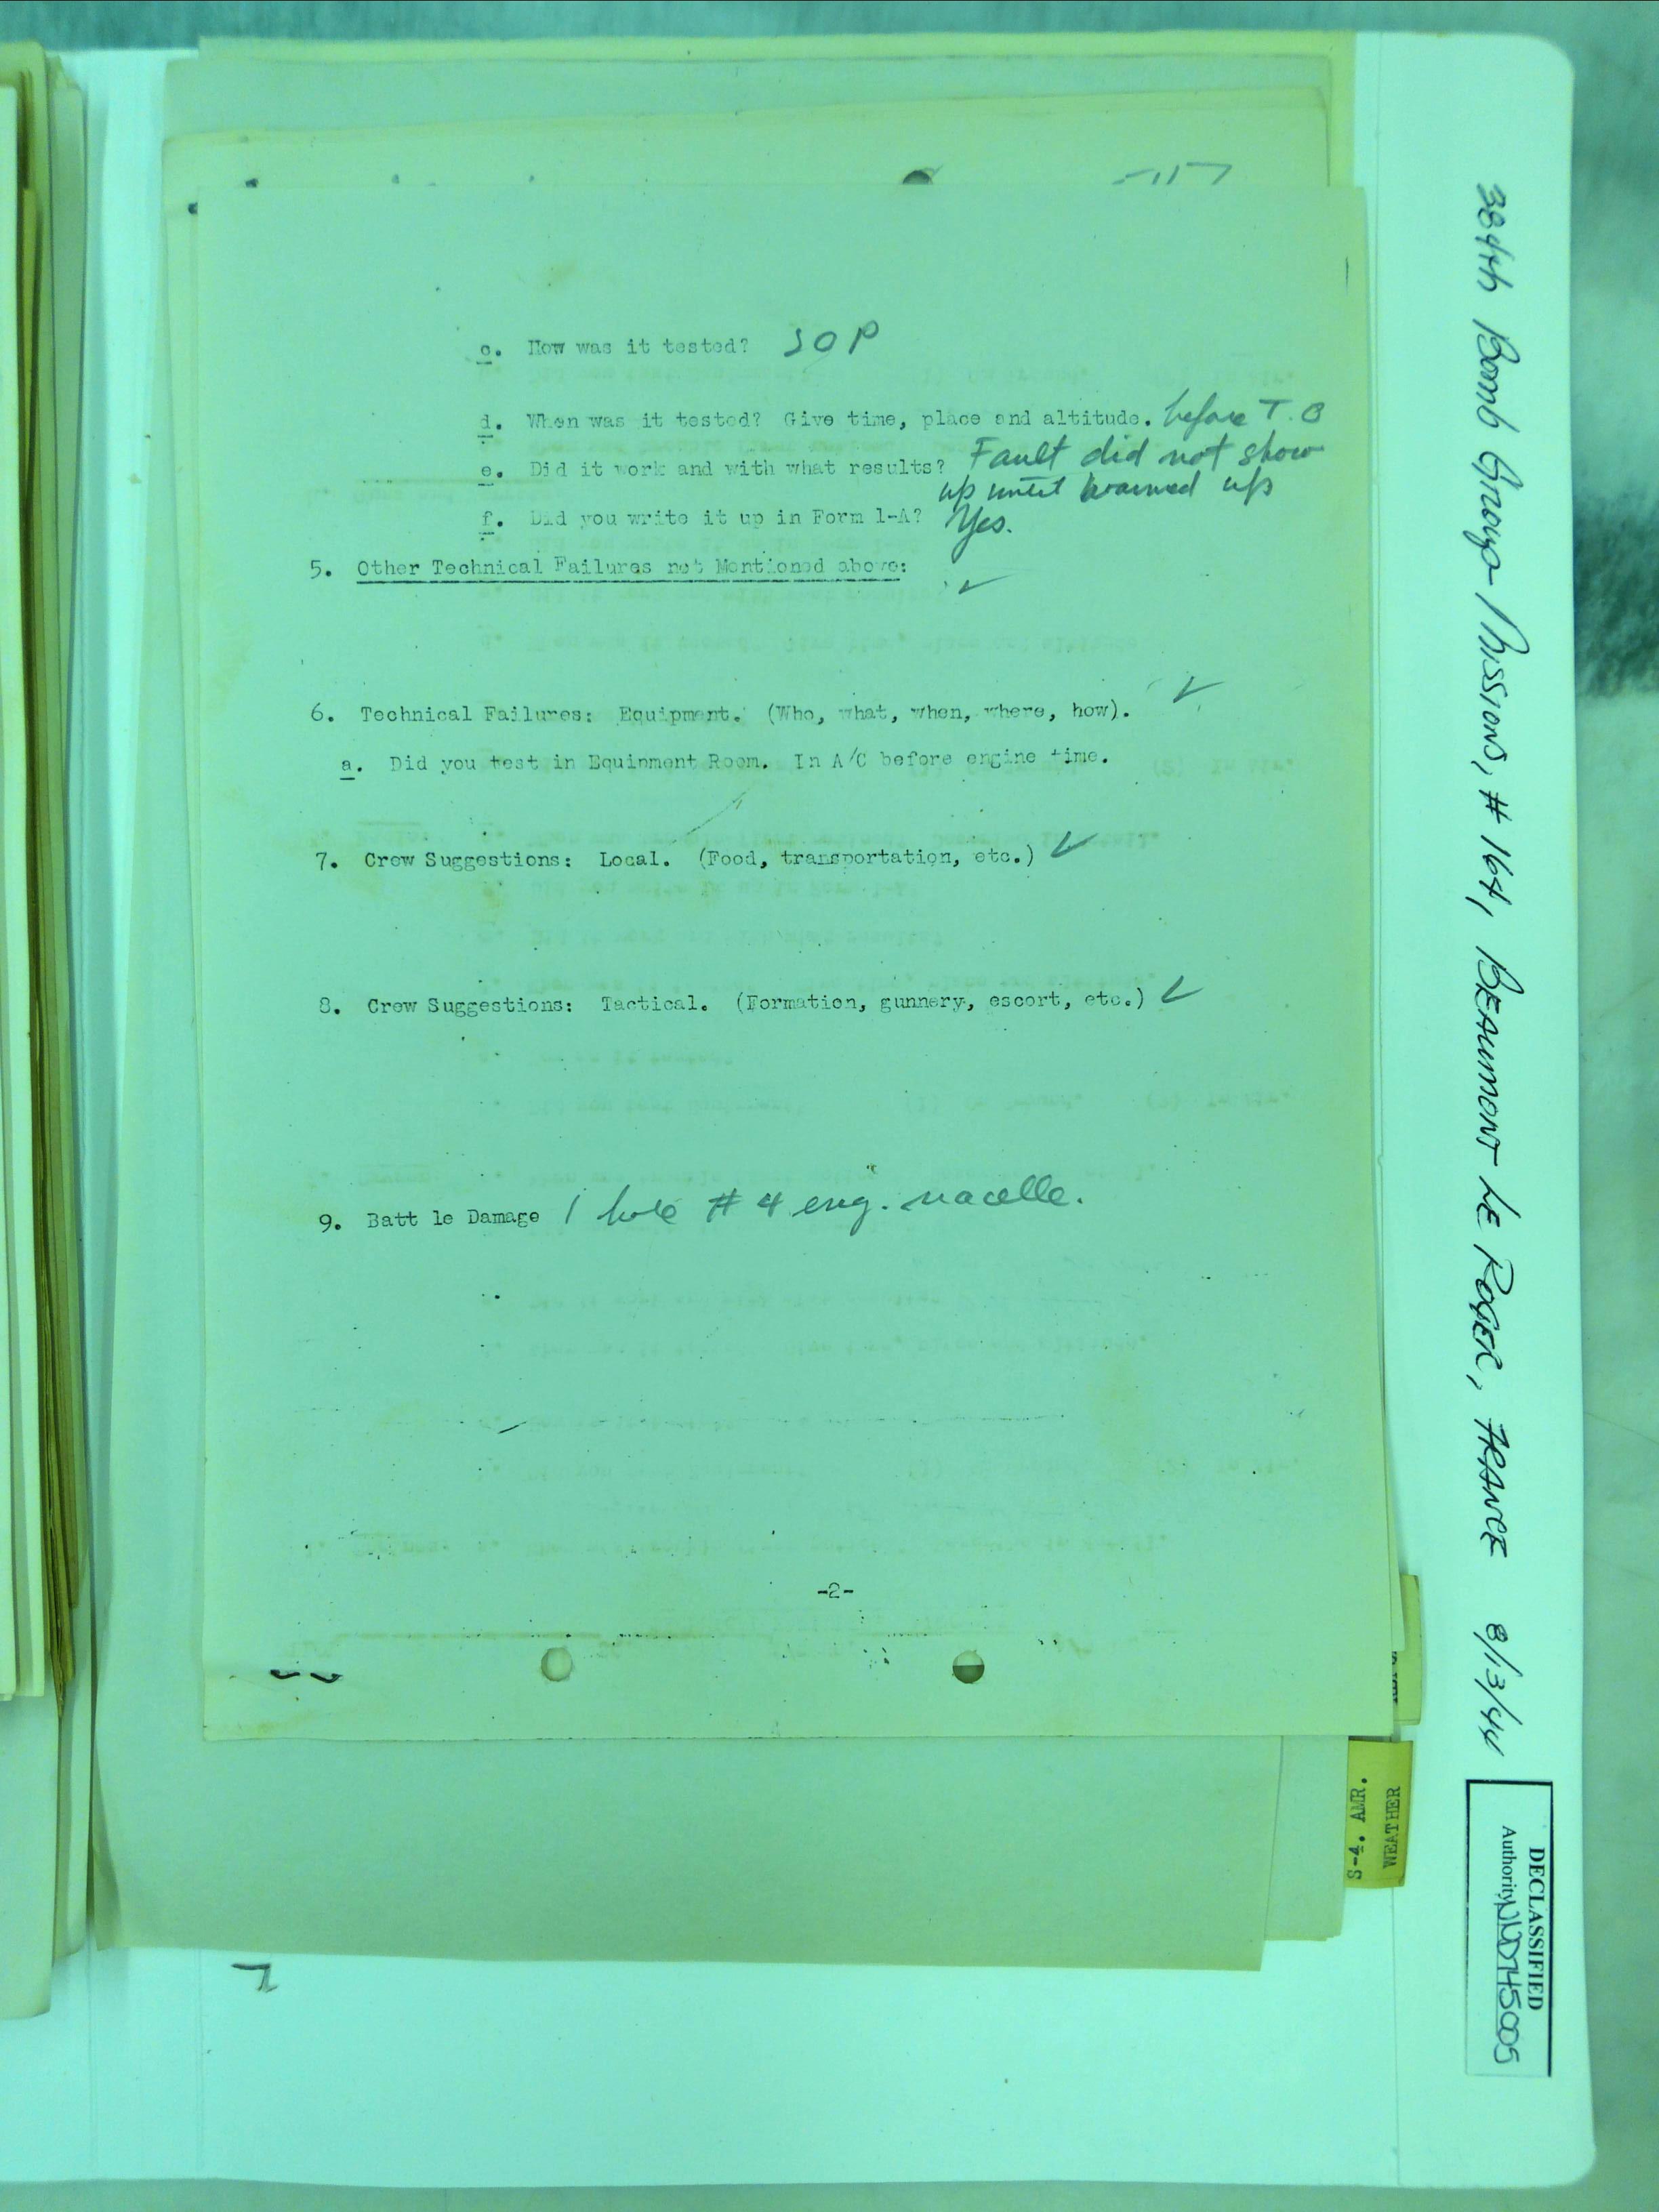 c. How was it tested? SOP
d. When was it tested? Give time, place and altitude. before T.O
e. Did it work and with what results? Fault did not show
up until warmed up
f. Did you write it up in Form 1-A? Yes.
5. Other Technical Failures not Mentioned above: ✓
6. Technical Failures: Equipment. (Who, what, when, where, how). ✓
a. Did you test in Equipment Room. In A/C before engine time.
7. Crew Suggestions: Local. (Food, transportation, etc.) ✓
8. Crew Suggestions: Tactical. (Formation, gunnery, escort, etc.) ✓
9. Batt le Damage 1 hole # 4 eng. nacelle.
-2-
384th Bomb Group Missions, # 164, BEAUMONT LE ROGER, FRANCE 8/13/44
DECLASSIFIED
Authority NND745005
WEATHER
S-4. AMR.